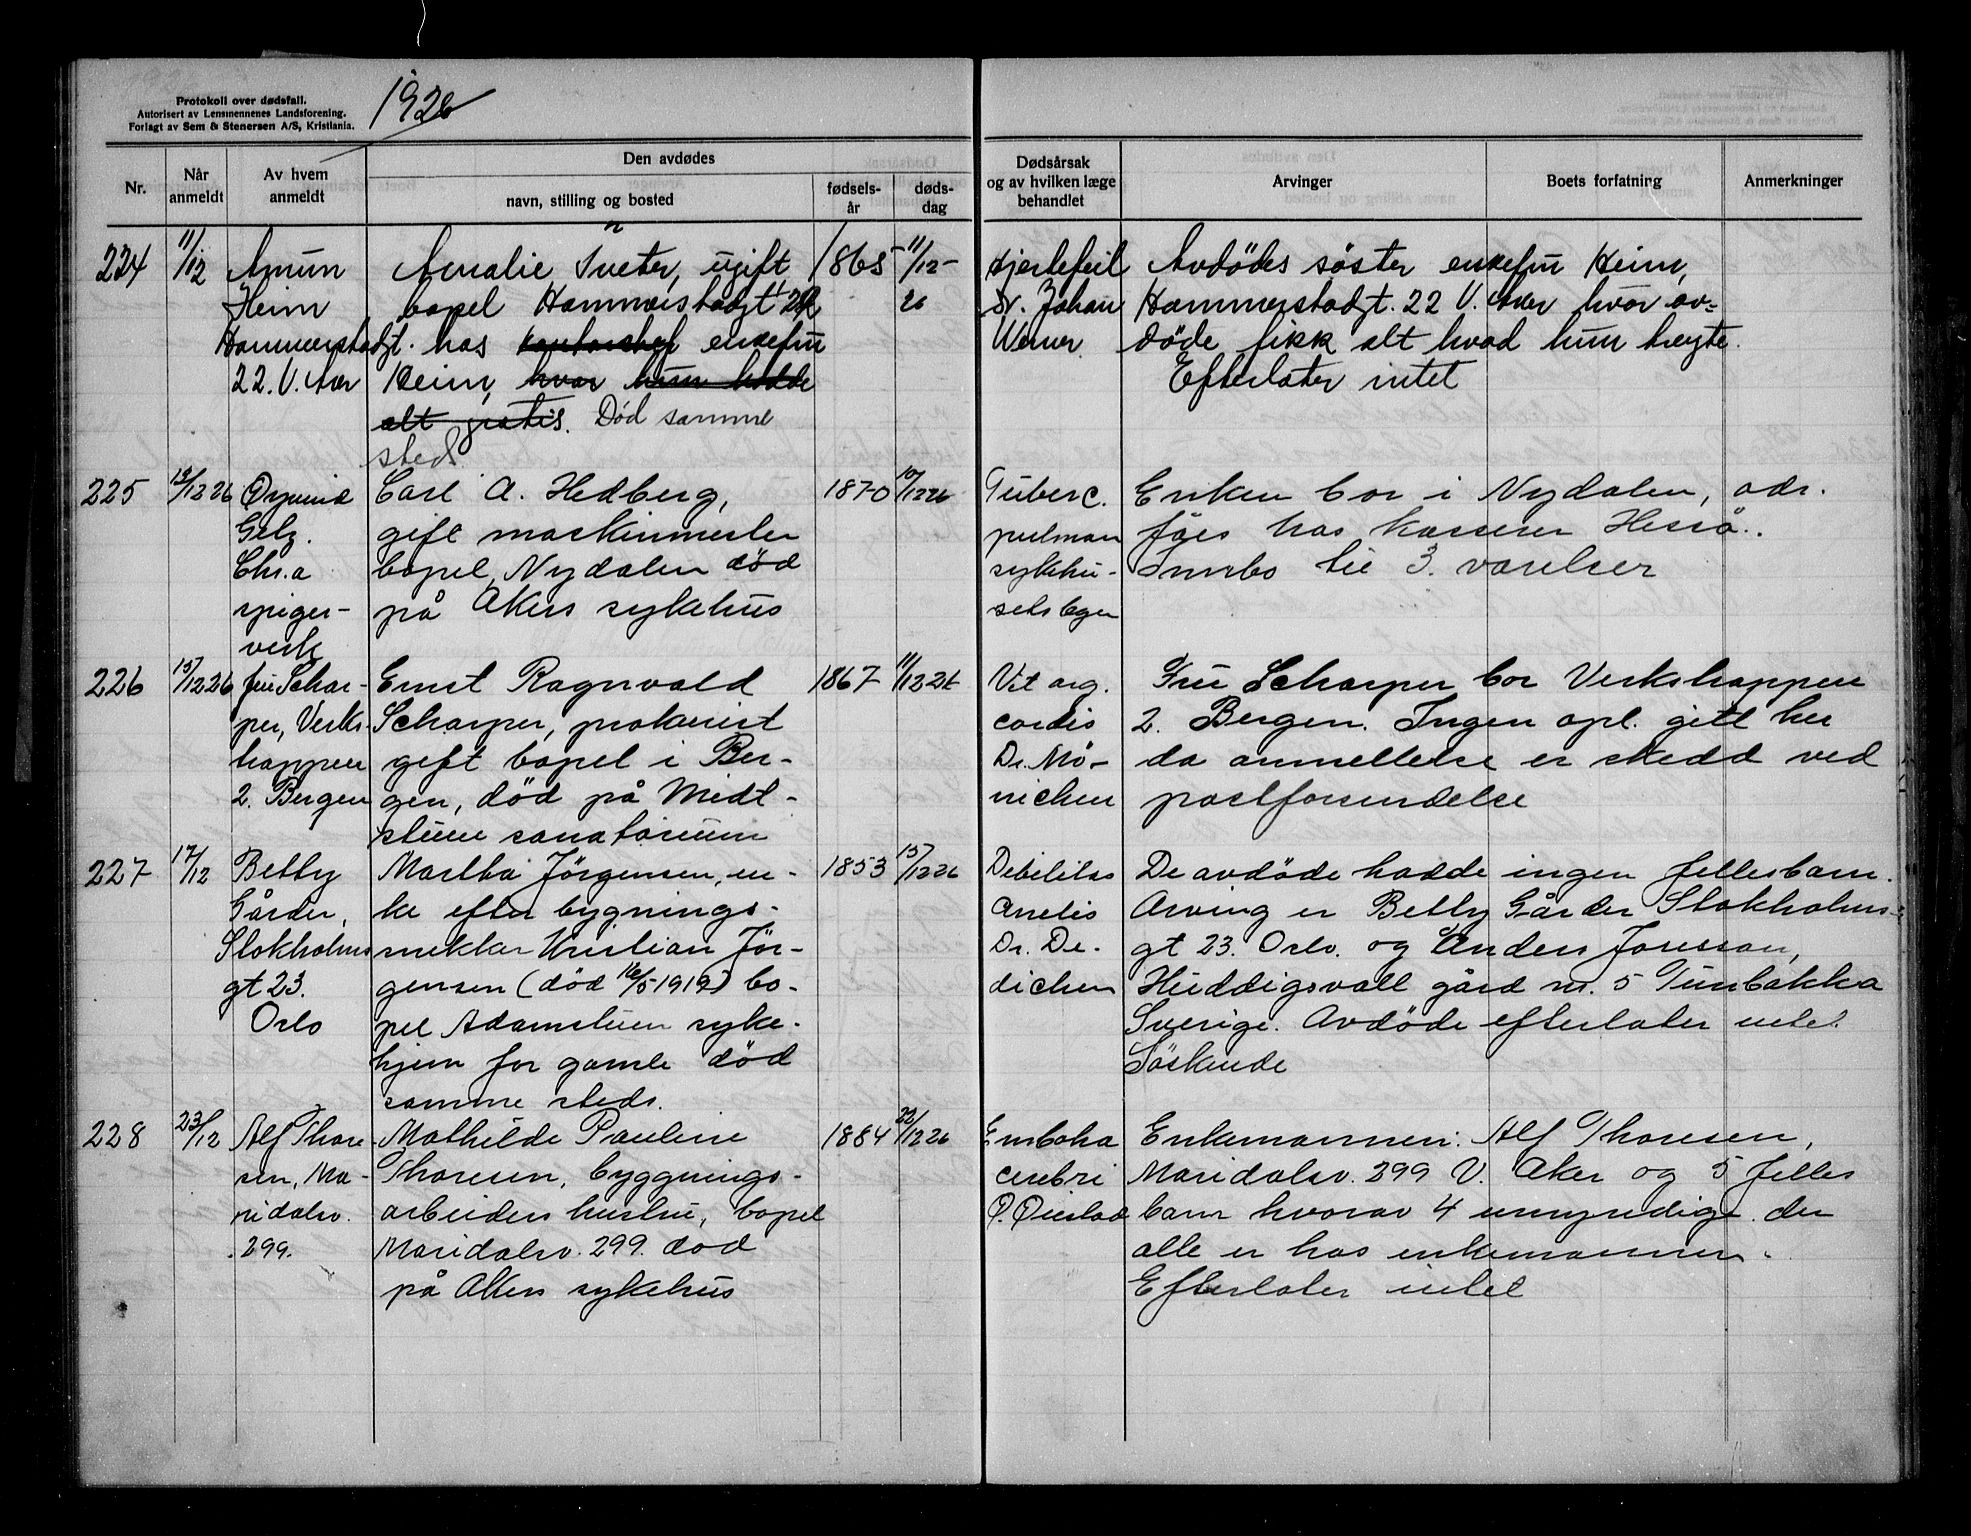 Protokoll over dødsfall.
Autorisert av Lensmennenes Landsforening.
Forlagt av Sem & Stenersen A/S, Kristiania.
1926
Nr.
Når anmeldt
Av hvem anmeldt
Den avdødes
navn, stilling og bosted
fødsels-år
døds-dag
Dødsårsak og av hvilken læge behandlet
Arvinger
Boets forfatning
Anmerkninger
224
11/12
Amun
Heim
Hammerstadgt.
22. V. Aker
Amalie Sveter, ugift
bopel Hammerstadgt 22
hos kontorchef enkefru
Heim, hvor hun hadde
alt gratis. Død samme
sted.
1865
11/12-
26
Hjertefeil
Dr. Johan
Werner
Avdödes söster enkefru Heim,
Hammerstadgt. 22 V. Aker hvor av-
döde fikk alt hvad hun trengte.
Efterlater intet
225
13/12 26
Øyvind
Gelz.
Chr.a
spiger-
verk
Carl A. Hedberg,
gift maskinmester
bopel, Nydalen død
på Akers sykehus
1870
10/12 26
Tuberc.
pulman
sykehu-
setslegen
Enken bor i Nydalen, adr.
fåes hos kasserer Hessö.
Innbs til 3. varelser
226
15/12 26
fru Schar-
per, Verks-
happen
2. Bergen
Ernst Ragnvald
Scharper, prokurist
gift bopel i Ber-
gen, død på Midt-
stuen sanatorium
1867
11/12 26
Vit org.
cordis
Dr. Mö-
nichen
Fru Scharper bor Verkshappen
2. Bergen. Ingen opl. gitt her
da anmeldelse er skedd ved
postforsendelse
227
17/12
Betty
Gårder,
Stokholms
gt 23.
Oslo
Martha Jörgensen, en-
ke efter bygnings-
snekker Kristian Jör-
gensen (død 16/5 1919) bo-
pel Adamstuen syke-
hjem for gamle død
samme steds.
1853
15/12 26
Debilitas
Dr. De-
dichen
De avdöde hadde ingen fellesbarn.
Arving er Betty Gårder Stokholms-
gt 23. Oslo. og Anders Joresson,
Huddigsvall gård nr. 5 Tunbakka
Sverige. Avdöde efterlater intet
Söskende
228
23/12
Alf Thore-
sen, Ma-
ridalsv.
299.
Mathilde Pauline
Thoresen, byggnings-
arbeiders hustru, bopel
Maridalsv. 299. død
på Akers sykehus
1884
22/12 26
Embolia
cerebri
O. Øiestad
Enkemannen: Alf Thoresen,
Maridalsv. 299 V. Aker og 5 felles
barn hvorav 4 umyndige der
alle er hos enkemannen.
Efterlater intet